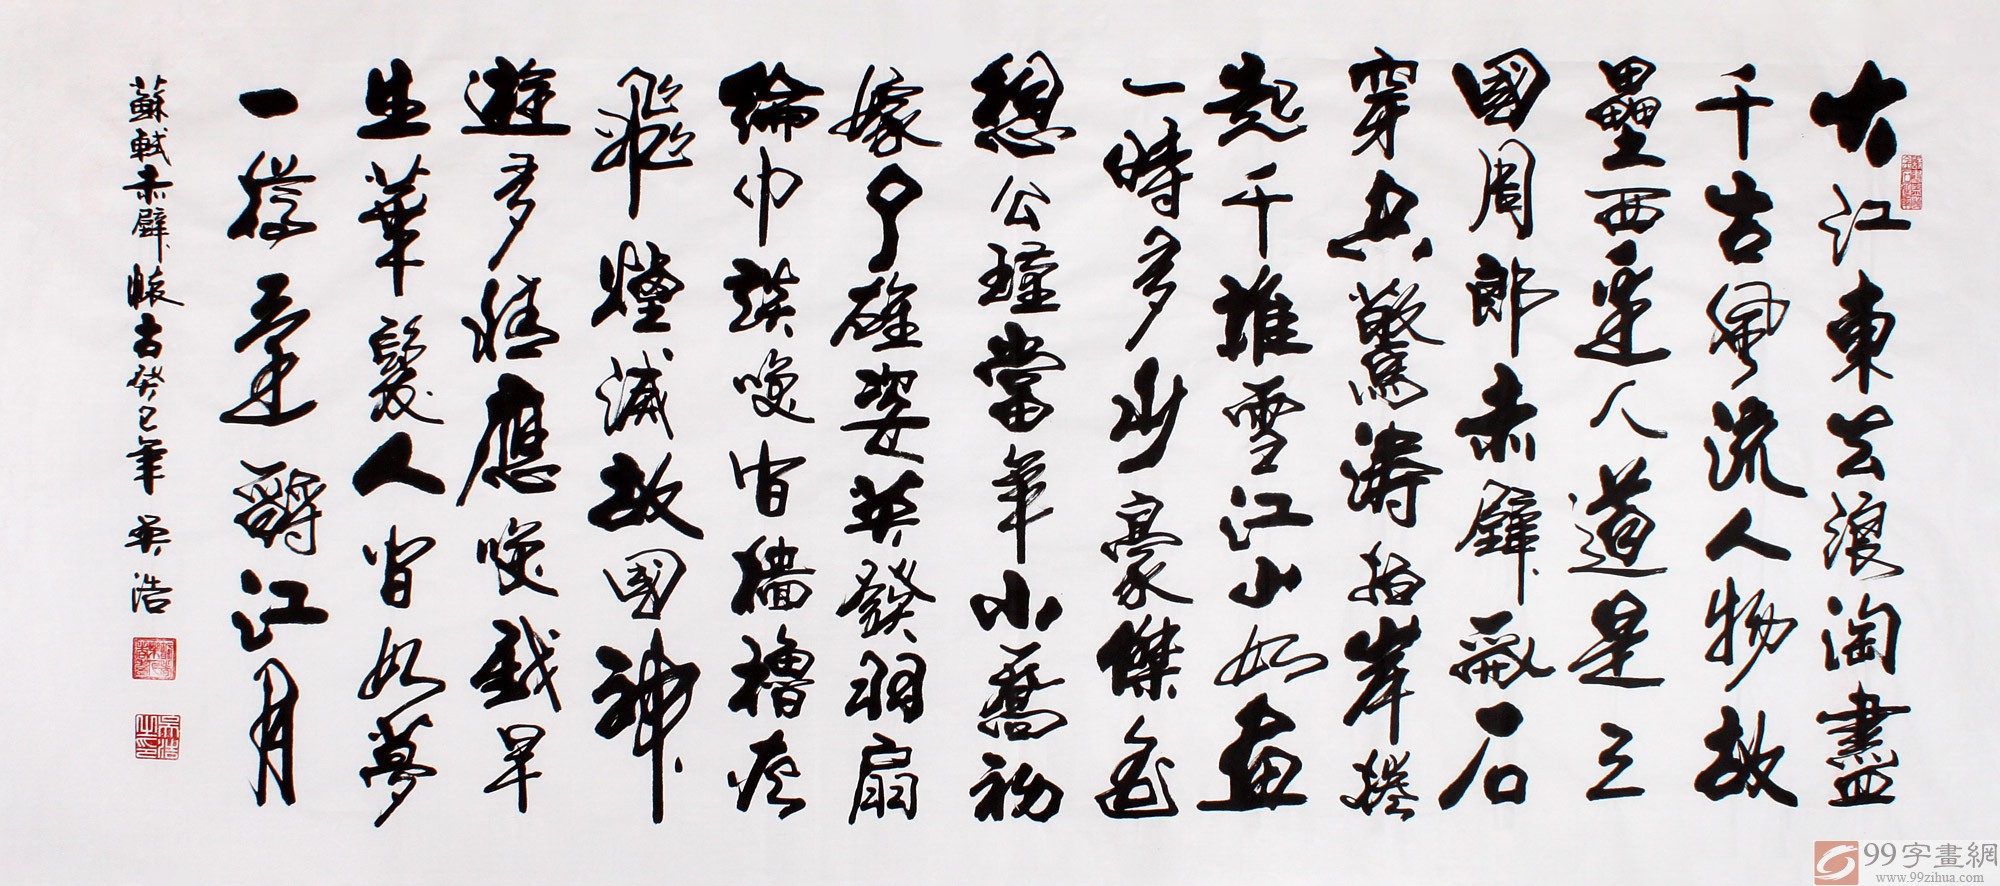 大江東去浪淘盡
千古風流人物故
壘西邊人道是三
國周郎赤壁亂石
穿空驚濤拍岸捲
起千堆雪江山如畫
一時多少豪傑遙
想公瑾當年小喬初
嫁了雄姿英發羽扇
綸巾談咲間檣櫓灰
飛煙滅故國神
遊多情應咲我早
生華髮人間如夢
一樽還酹江月
蘇軾赤壁懷古癸巳年 吳浩
吳浩之印
99字畫網
www.99zihua.com